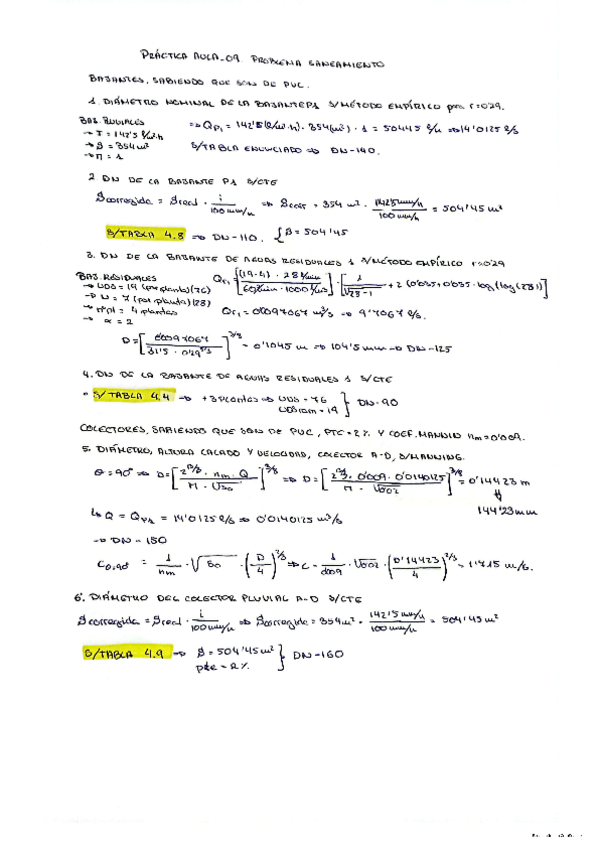 PRÁCTICA AULA_09. PROBLEMA SANEAMIENTO
BAJANTES, SABIENDO QUE SON DE PVC.
1. DIÁMETRO NOMINAL DE LA BAJANTE P1 S/MÉTODO EMPÍRICO para r=0'29.
BAJ. PLUVIALES
→ I = 142'5 l/m²·h
→ S = 354 m²
→ η = 1
⇒ Qp1 = 142'5 (l/m²·h) · 354 (m²) · 1 = 50445 l/h ⇒ 14'0125 l/s
S/TABLA ENUNCIADO ⇒ DN-140.
2 DN DE LA BAJANTE P1 S/CTE
Scorregida = Sreal · i / 100 mm/h ⇒ Scorr = 354 m² · 142'5 mm/h / 100 mm/h = 504'45 m²
S/TABLA 4.8 ⇒ DN-110. { S = 504'45
3. DN DE LA BAJANTE DE AGUAS RESIDUALES 1 S/MÉTODO EMPÍRICO r=0'29
BAJ. RESIDUALES
→ UDS = 19 (por planta) (76)
→ N = 7 (por planta) (28)
→ nº pl = 4 plantas
→ α = 2
Qr1 = [(19·4) · 28 l/min / 60 s/min · 1000 l/m³] · [1 / √28-1 + 2 (0'035 + 0'035 · log (log (28)))]
Qr1 = 0'0097067 m³/s ⇒ 9'7067 l/s.
D = [0'0097067 / 31'5 · 0'29^5/3]^3/8 = 0'1045 m ⇒ 104'5 mm ⇒ DN-125
4. DN DE LA BAJANTE DE AGUAS RESIDUALES 1 S/CTE
S/TABLA 4.4 → +3 plantas ⇒ UDS = 76
UDS ram = 19 } DN-90
COLECTORES, SABIENDO QUE SON DE PVC, PTE = 2% Y COEF. MANNING nm = 0'009.
5. DIÁMETRO, ALTURA CALADO Y VELOCIDAD, COLECTOR A-D, S/MANNING.
θ = 90° ⇒ D = [2^13/3 · nm · Q / π · √So]^3/8 ⇒ D = [2^13/3 · 0'009 · 0'0140125 / π · √0'02]^3/8 = 0'14423 m
↳ Q = Qp1 = 14'0125 l/s ⇒ 0'0140125 m³/s
144'23 mm
→ DN-150
= 1 / nm · √So · (D / 4)^2/3 ⇒ C = 1 / 0'009 · √0'02 · (0'14423 / 4)^2/3 = 1'715 m/s.
6. DIÁMETRO DEL COLECTOR PLUVIAL A-D S/CTE
Scorregida = Sreal · i / 100 mm/h ⇒ Scorregida = 354 m² · 142'5 mm/h / 100 mm/h = 504'45 m²
S/TABLA 4.9 → S = 504'45 m²
pte = 2% } DN-160